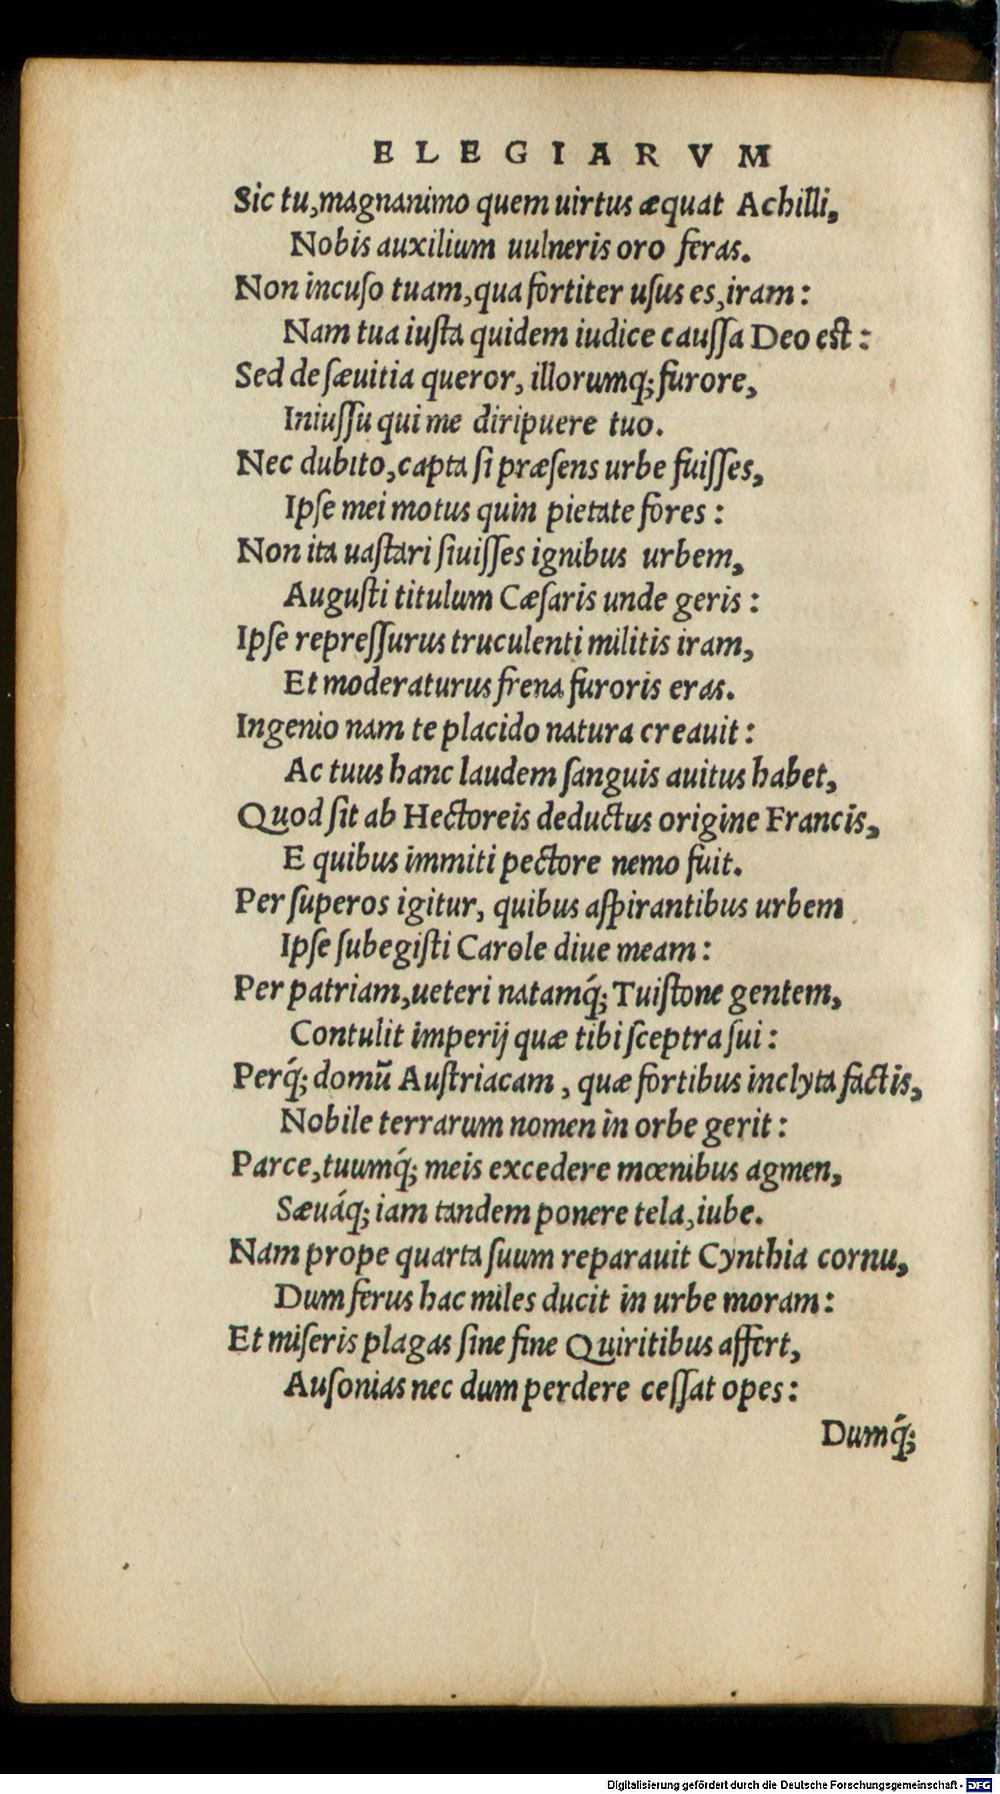 ELEGIARVM
Sic tu, magnanimo quem uirtus æquat Achilli,
Nobis auxilium uulneris oro feras.
Non incuſo tuam, qua fortiter uſus es, iram:
Nam tua iuſta quidem iudice cauſſa Deo eſt:
Sed de ſæuitia queror, illorumq; furore,
Iniuſſu qui me diripuere tuo.
Nec dubito, capta ſi præſens urbe fuiſſes,
Ipſe mei motus quin pietate fores:
Non ita uaſtari ſiuiſſes ignibus urbem,
Auguſti titulum Cæſaris unde geris:
Ipſe repreſſurus truculenti militis iram,
Et moderaturus frena furoris eras.
Ingenio nam te placido natura creauit:
Ac tuus hanc laudem ſanguis auitus habet,
Quod ſit ab Hectoreis deductus origine Francis,
E quibus immiti pectore nemo fuit.
Per ſuperos igitur, quibus aſpirantibus urbem
Ipſe ſubegiſti Carole diue meam:
Per patriam, ueteri natamq́; Tuiſtone gentem,
Contulit imperij quæ tibi ſceptra ſui:
Perq́; domū Auſtriacam, quæ fortibus inclyta factis,
Nobile terrarum nomen in orbe gerit:
Parce, tuumq́; meis excedere mœnibus agmen,
Sæuáq; iam tandem ponere tela, iube.
Nam prope quarta ſuum reparauit Cynthia cornu,
Dum ferus hac miles ducit in urbe moram:
Et miſeris plagas ſine fine Quiritibus affert,
Auſonias nec dum perdere ceſſat opes:
Dumq́;
Digitalisierung gefördert durch die Deutsche Forschungsgemeinschaft - DFG